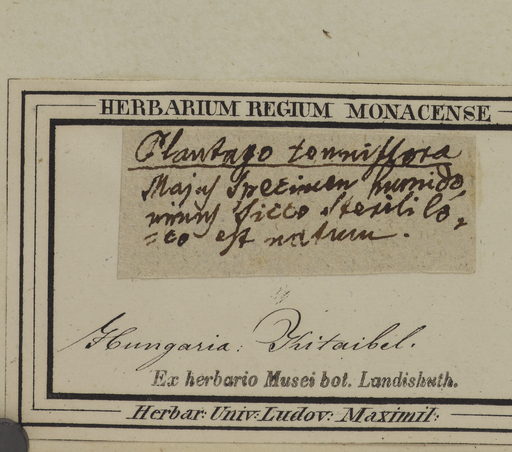 HERBARIUM REGIUM MONACENSE
Plantago tenuiflora
Majus Specimen humido,
minus sicco sterili lo⸗
⸗co est natum.
Hungaria: Kitaibel.
Ex herbario Musei bot. Landishuth.
Herbar: Univ: Ludov: Maximil: